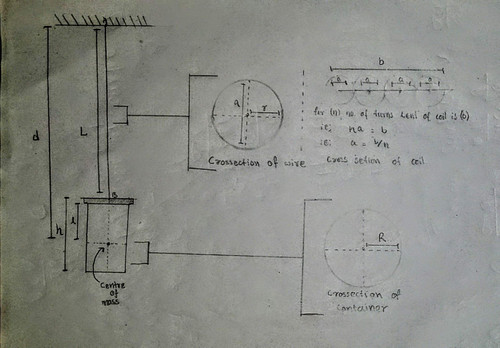 b
a a a a
d
L
a
r
for (n) no of turns Lent of coil is (b)
ie: na = b
ie: a = b/n
Crossection of wire
Cross section of coil
B
h
l
R
Centre
of
mass
Crossection of
container